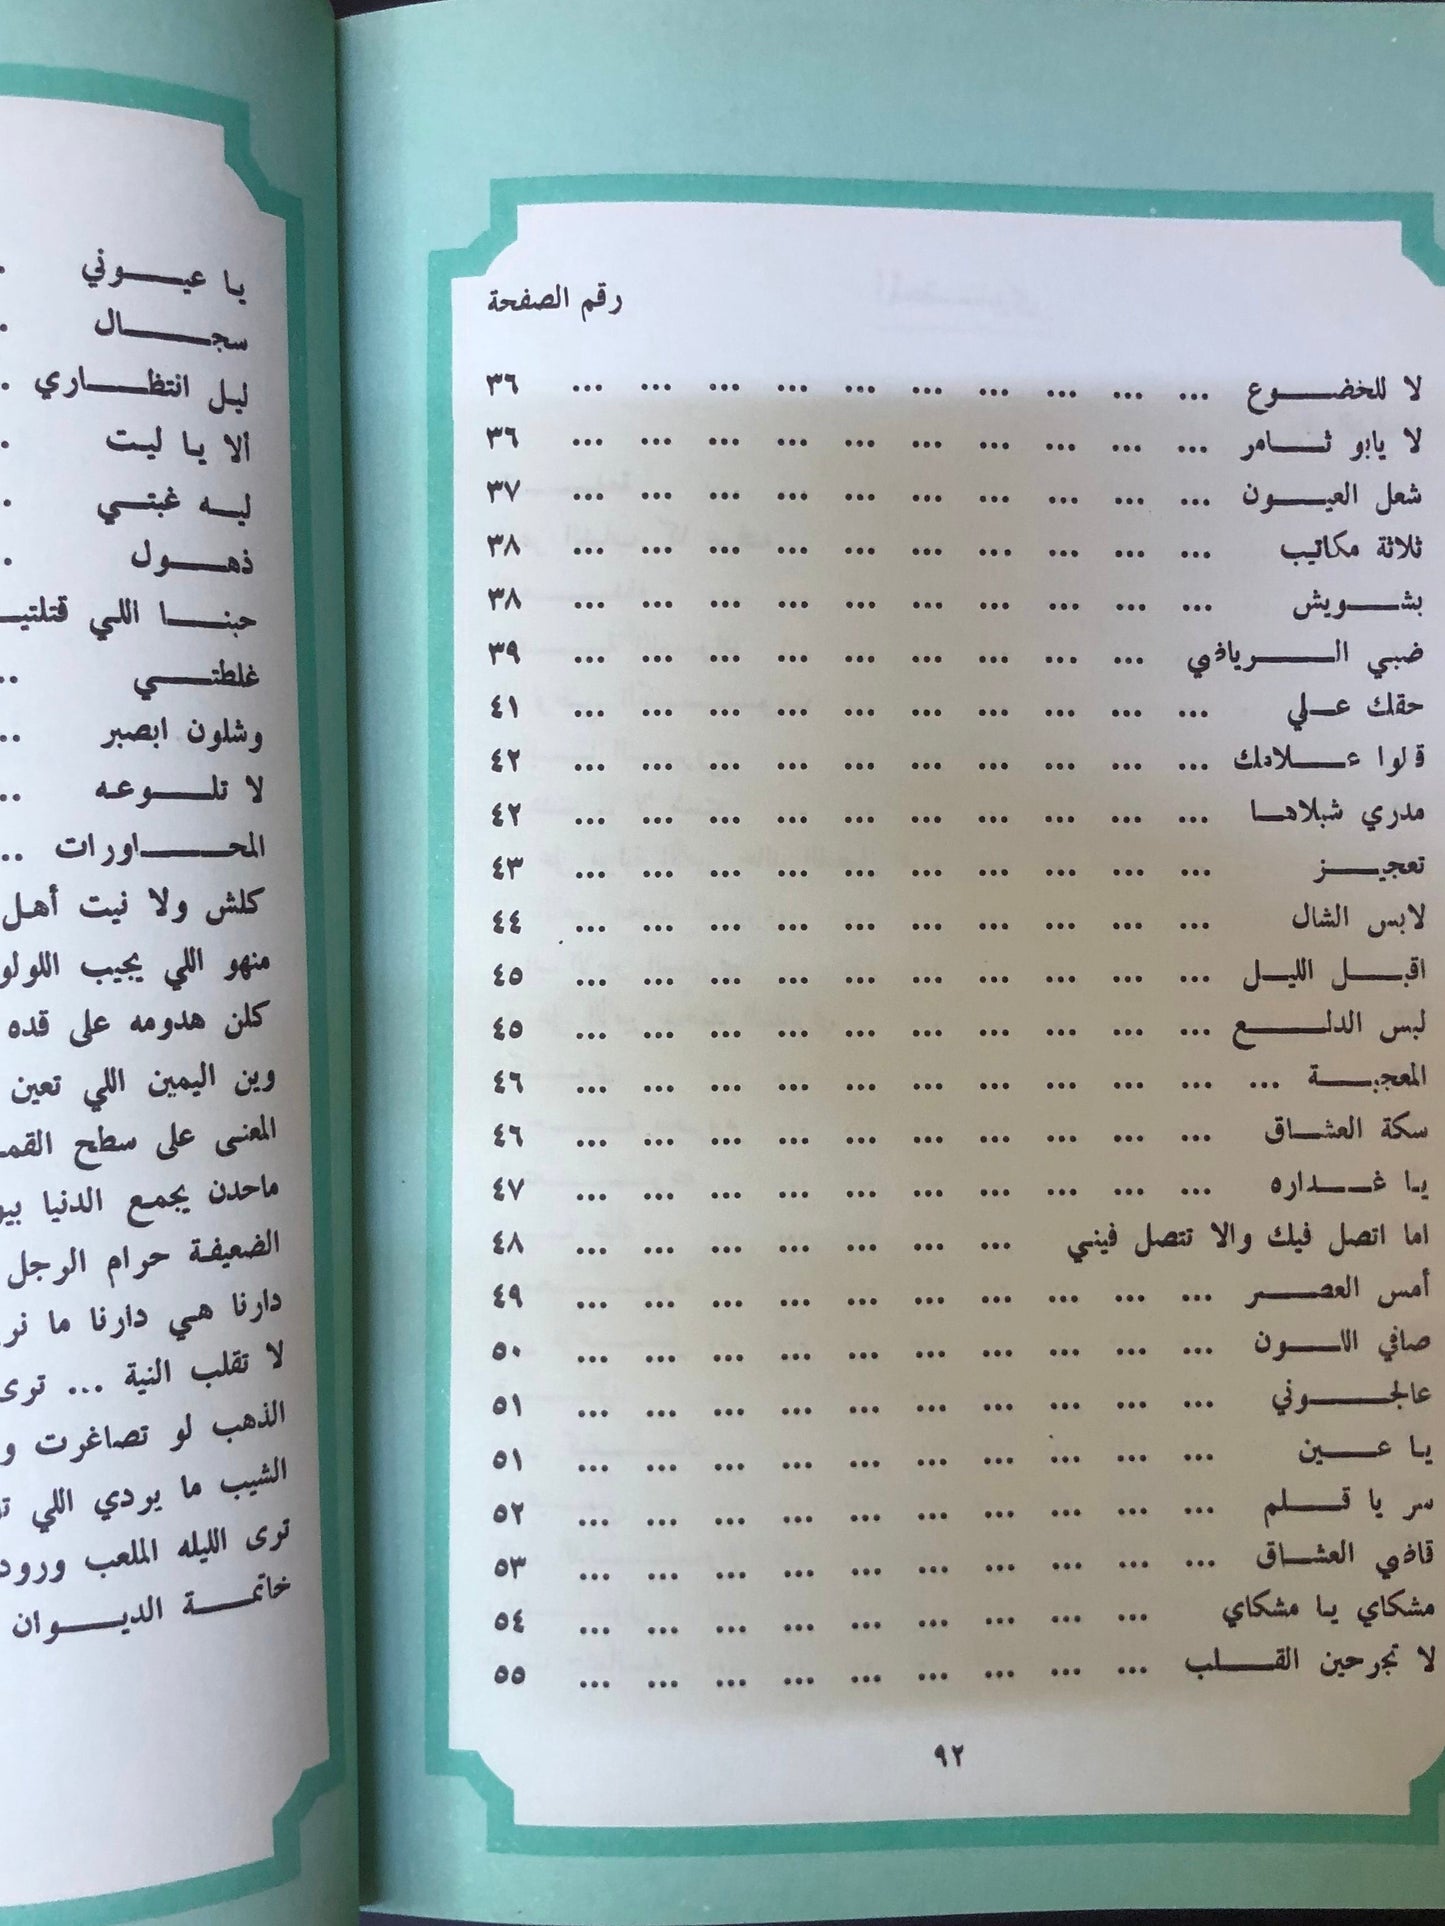 رقم الصفحة
لا للخضوع ... ... ... ... ... ... ... ... ... ... ٣٦
لا يابو ثامر ... ... ... ... ... ... ... ... ... ... ٣٦
شعل العيون ... ... ... ... ... ... ... ... ... ... ٣٧
ثلاثة مكاتيب ... ... ... ... ... ... ... ... ... ... ٣٨
بشويش ... ... ... ... ... ... ... ... ... ... ٣٨
ضبي الرياضي ... ... ... ... ... ... ... ... ... ٣٩
حقك علي ... ... ... ... ... ... ... ... ... ... ٤١
قالوا علامك ... ... ... ... ... ... ... ... ... ... ٤٢
مدري شبلاها ... ... ... ... ... ... ... ... ... ... ٤٢
تعجيز ... ... ... ... ... ... ... ... ... ... ٤٣
لابس الشال ... ... ... ... ... ... ... ... ... ... ٤٤
اقبل الليل ... ... ... ... ... ... ... ... ... ... ٤٥
لبس الدلع ... ... ... ... ... ... ... ... ... ... ٤٥
المعجبة ... ... ... ... ... ... ... ... ... ... ... ٤٦
سكة العشاق ... ... ... ... ... ... ... ... ... ... ٤٦
يا غداره ... ... ... ... ... ... ... ... ... ... ٤٧
اما اتصل فيك والا تتصل فيني ... ... ... ... ... ... ... ٤٨
أمس العصر ... ... ... ... ... ... ... ... ... ... ٤٩
صافي اللون ... ... ... ... ... ... ... ... ... ... ٥٠
عالجوني ... ... ... ... ... ... ... ... ... ... ٥١
يا عين ... ... ... ... ... ... ... ... ... ... ٥١
سر يا قلم ... ... ... ... ... ... ... ... ... ... ٥٢
قاضي العشاق ... ... ... ... ... ... ... ... ... ... ٥٣
مشكاي يا مشكاي ... ... ... ... ... ... ... ... ... ٥٤
لا تجرحين القلب ... ... ... ... ... ... ... ... ... ٥٥
٩٢
يا عيوني
سجال
ليل انتظاري
ألا يا ليت
ليه غبتي
ذهول
حبنا اللي
غلطتي
وشلون ابصبر
لا تلوعه
المحاورات
كلش ولا نيت أهل
منهو اللي يجيب
كلن هدومه على قده
وين اليمين اللي تعين
المعنى على سطح
ماحدن يجمع الدنيا
الضعيفة حرام الرجل
دارنا هي دارنا ما
لا تقلب النية ... ترى
الذهب لو تصاغرت
الشيب ما يردي اللي
ترى الليله الملعب
خاتمة الديوان